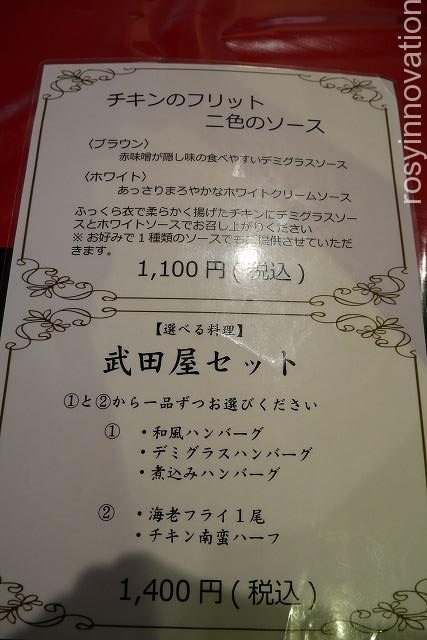 チキンのフリット
二色のソース
〈ブラウン〉
赤味噌が隠し味の食べやすいデミグラスソース
〈ホワイト〉
あっさりまろやかなホワイトクリームソース
ふっくら衣で柔らかく揚げたチキンにデミグラスソー
スとホワイトソースでお召し上がりください
※ お好みで1種類のソースでもご提供させていただ
きます。
1,100円(税込)
【選べる料理】
武田屋セット
①と②から一品ずつお選びください
① ・和風ハンバーグ
・デミグラスハンバーグ
・煮込みハンバーグ
② ・海老フライ1尾
・チキン南蛮ハーフ
1,400円(税込)
rosyinnovation